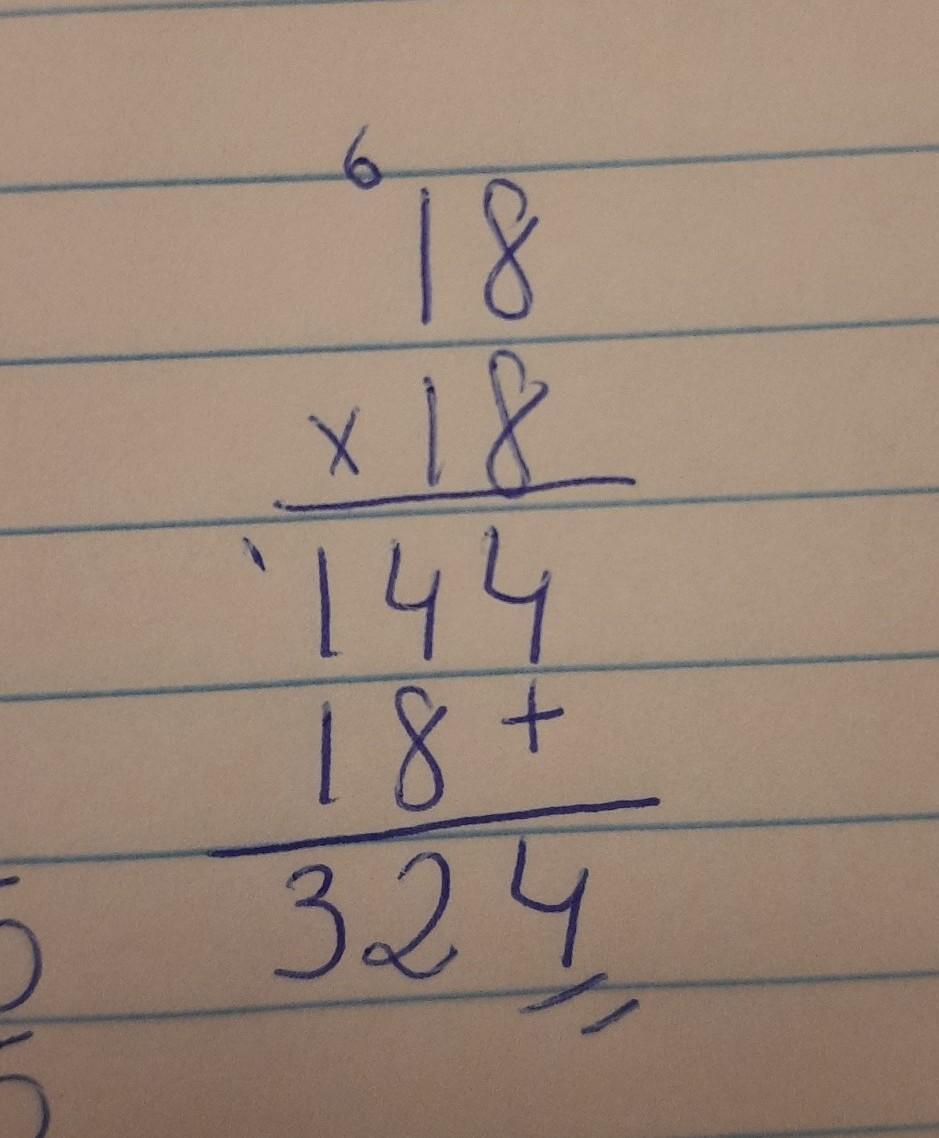 6
18
x 18
144
18 +
324
5
5